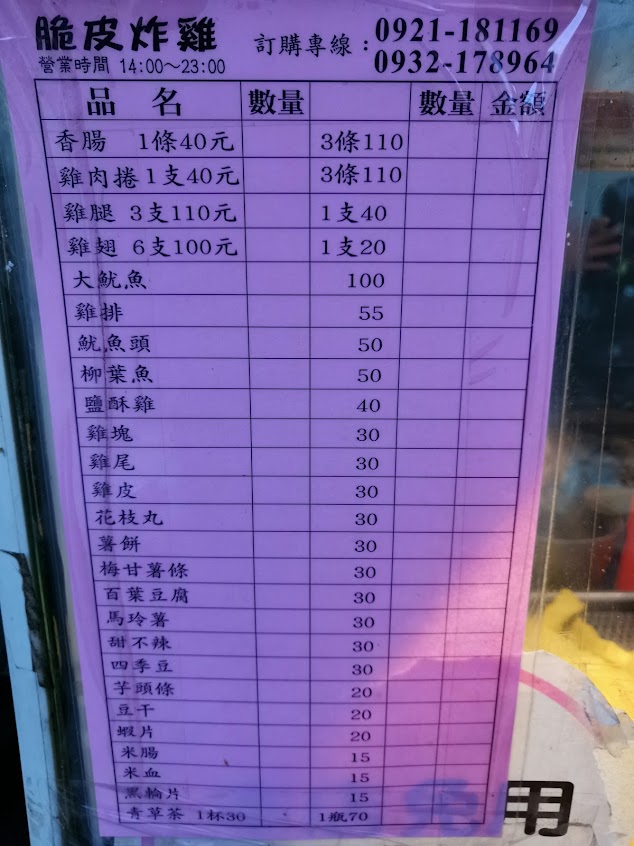 脆皮炸雞
營業時間 14:00～23:00
訂購專線：0921-181169
0932-178964
品 名 數量 數量 金額
香腸 1條40元 3條110
雞肉捲 1支40元 3條110
雞腿 3支110元 1支40
雞翅 6支100元 1支20
大魷魚 100
雞排 55
魷魚頭 50
柳葉魚 50
鹽酥雞 40
雞塊 30
雞尾 30
雞皮 30
花枝丸 30
薯餅 30
梅甘薯條 30
百葉豆腐 30
馬玲薯 30
甜不辣 30
四季豆 30
芋頭條 20
豆干 20
蝦片 20
米腸 15
米血 15
黑輪片 15
青草茶 1杯30 1瓶70
用